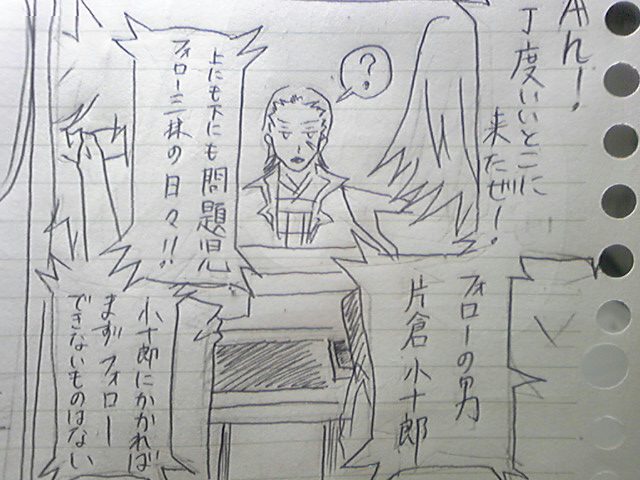 Aん!
丁度いいとこに
来たぜー!
?
上にも下にも問題児
フォロー三昧の日々!!
フォローの男
片倉 小十郎
小十郎にかかれば
まずフォロー
できないものはない